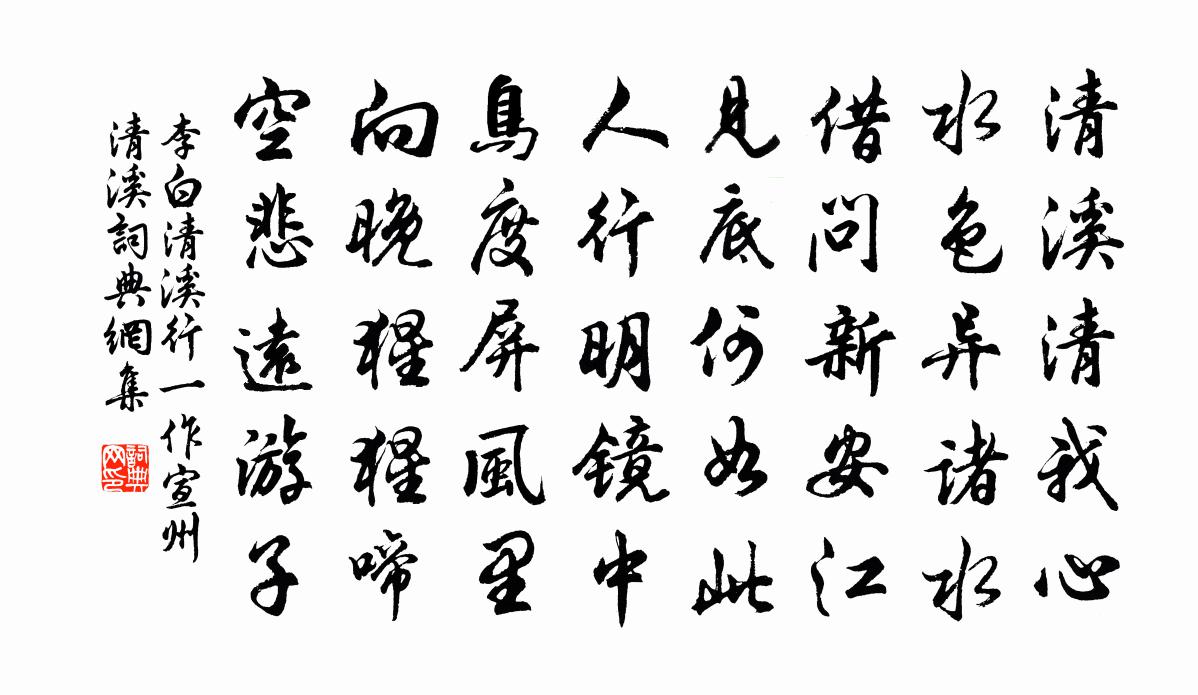 清溪清我心
水色异诸水
借问新安江
見底何如此
人行明镜中
鳥度屏風里
向晚猩猩啼
空悲遠游子
李白清溪行一作宣州
清溪詞典網集
詞典
网印